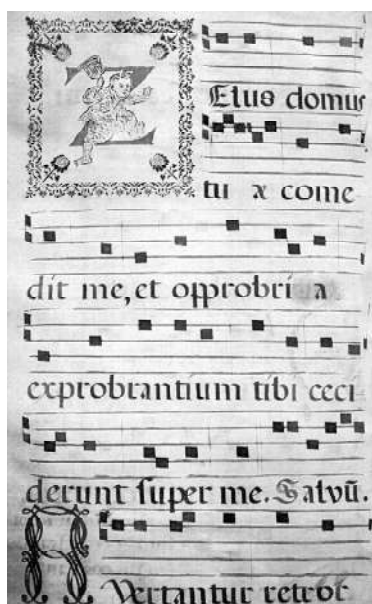 ZElus domus
tuæ come
dit me, et opprobria
exprobrantium tibi ceci
derunt super me. Salvũ.
AVertantur retror